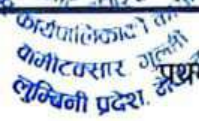 कार्यपालिकाको
वामीटक्सार, गुल्मी
लुम्बिनी प्रदेश,
प्रथ